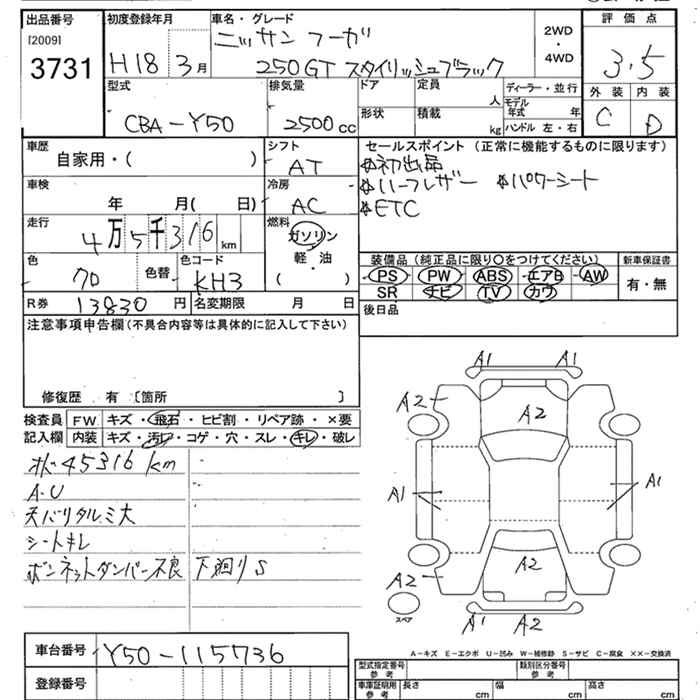 出品番号 初度登録年月 車名・グレード 2WD・4WD 評価点
[2009] ニッサン フーガ
3731 H18 3月 250GT スタイリッシュブラック 3.5
型式 排気量 ドア 定員 人 ディーラー・並行 外装 内装
形状 積載 kg モデル年式 年
CBA-Y50 2500cc ハンドル 左・右 C D
車歴 シフト セールスポイント (正常に機能するものに限ります)
自家用・( ) AT ☆初出品
車検 冷房 ☆ハーフレザー ☆パワーシート
年 月( 日) AC ☆ETC
走行 燃料
4万5千316km ガソリン
軽・油
( )
装備品 (純正品に限り〇をつけてください) 新車保証書
色 色替 色コード PS PW ABS エアB AW 有・無
黒 KH3 SR ナビ TV カワ
R券 13830円 名変期限 月 日 後日品
注意事項申告欄 (不具合内容等は具体的に記入して下さい)
修復歴 有 〔箇所 〕
検査員 FW キズ・飛石・ヒビ割・リペア跡・×要
記入欄 内装 キズ・汚レ・コゲ・穴・スレ・キレ・破レ
45316km
A・U
天バリタルミ大
シートキレ
ボンネットダンパー不良 下廻りS
A1 A1
A2 A2
A1 A1
A2 A2
A1 A2
スペア
A-キズ E-エクボ U-凹み W-補修跡 S-サビ C-腐食 ××-交換済
車台番号 Y50-115736
登録番号
型式指定番号 参考 類別区分番号 参考
車庫証明用 参考 長さ cm 幅 cm 高さ cm